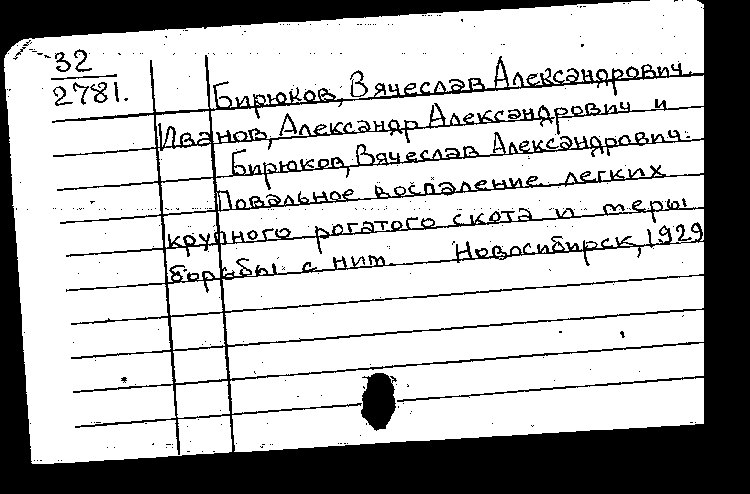 32
2781.
Бирюков, Вячеслав Александрович.
Иванов, Александр Александрович и
Бирюков, Вячеслав Александрович.
Повальное воспаление легких
крупного рогатого скота и меры
борьбы с ним. Новосибирск, 1929